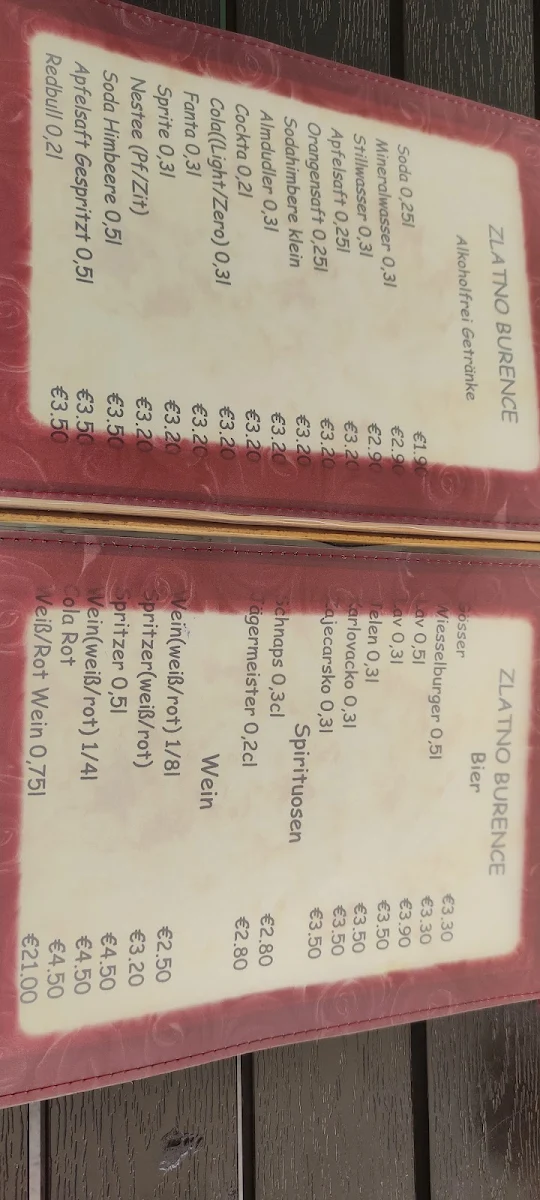 ZLATNO BURENCE
Alkoholfrei Getränke
Soda 0,25l €1.90
Mineralwasser 0,3l €2.90
Stillwasser 0,3l €2.90
Apfelsaft 0,25l €3.20
Orangensaft 0,25l €3.20
Sodahimbere klein €3.20
Almdudler 0,3l €3.20
Cockta 0,2l €3.20
Cola((Light/Zero) 0,3l €3.20
Fanta 0,3l €3.20
Sprite 0,3l €3.20
Nestee (Pf/Zit) €3.20
Soda Himbeere 0,5l €3.50
Apfelsaft Gespritzt 0,5l €3.50
Redbull 0,2l €3.50
ZLATNO BURENCE
Bier
Gösser €3.30
Wiesselburger 0,5l €3.30
Lav 0,5l €3.90
Lav 0,3l €3.50
Jelen 0,3l €3.50
Karlovacko 0,3l €3.50
Zajecarsko 0,3l €3.50
Spirituosen
Schnaps 0,3cl €2.80
Jägermeister 0,2cl €2.80
Wein
Wein(weiß/rot) 1/8l €2.50
Spritzer(weiß/rot) €3.20
Spritzer 0,5l €4.50
Wein(weiß/rot) 1/4l €4.50
Cola Rot €4.50
Weiß/Rot Wein 0,75l €21.00